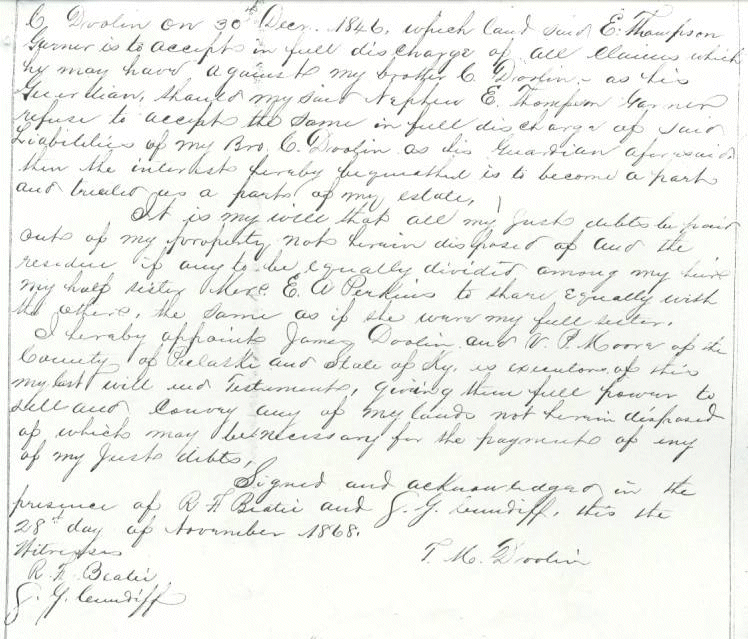 C Doolin on 30th Decr. 1846, which land said E. Thompson
Garner is to accept in full discharge of all Claims which
he may have against my brother C. Doolin - as his
Guardian, should my said Nephew E. Thompson Garner
refuse to accept the same in full discharge of said
Liabilities of my Bro. C. Doolin as his Guardian aforesaid
then the interest hereby bequeathed is to become a part
and treated as a part of my estate.
It is my will that all my just debts be paid
out of my property not herein disposed of and the
residue if any to be equally divided among my heirs
my half sister Mrs. E. A Perkins to share equally with
the others, the same as if she were my full sister.
I hereby appoint James Doolin and V. P. Moore of the
County of Pulaski and State of Ky. as executors of this
my last will and Testament, giving them full power to
sell and Convey any of my lands not herein disposed
of which may be necessary for the payment of any
of my just debts.
Signed and acknowledged in the
presence of R H Beatie and J. G. Cundiff, this the
28th day of November 1868.
Witnesses
T. M. Doolin
R. H. Beatie
J. G. Cundiff